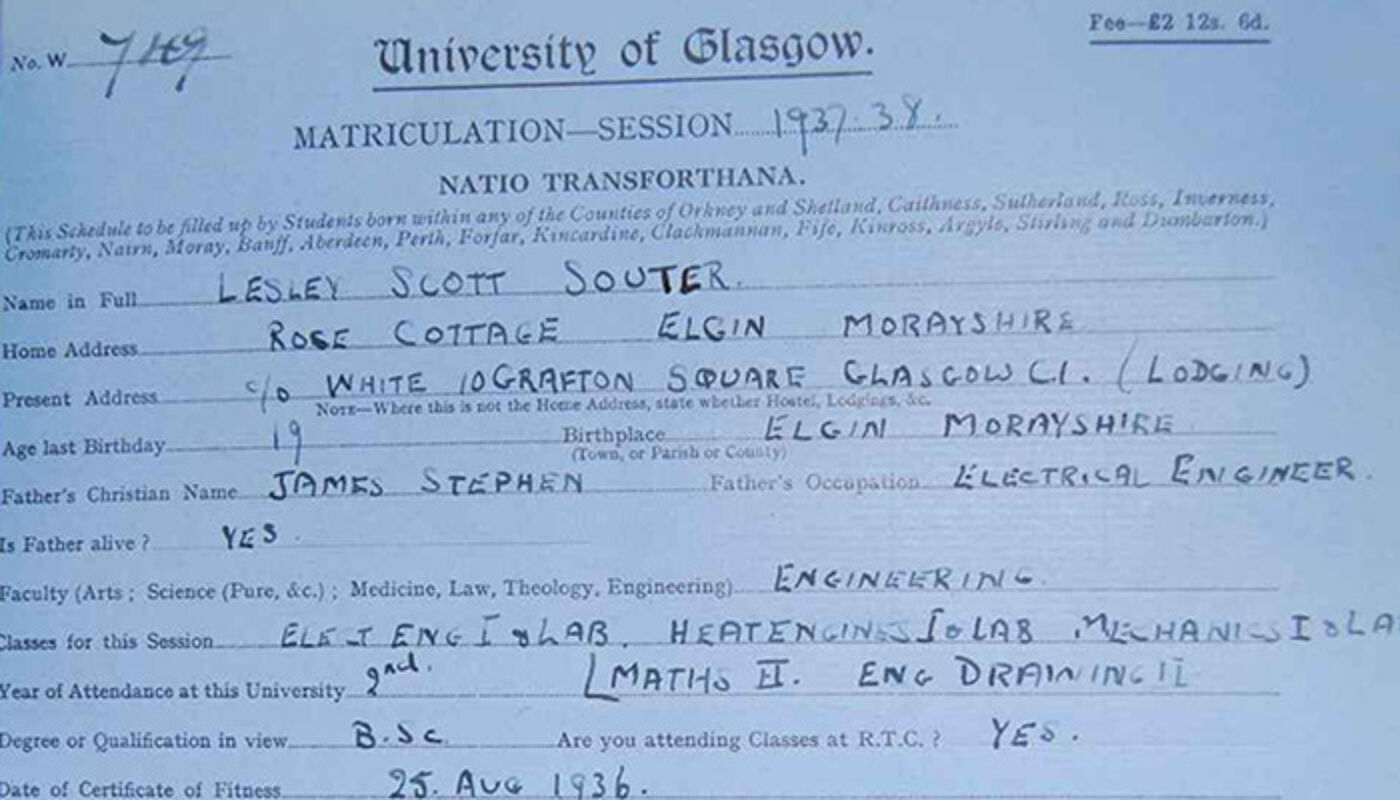 Fee—£2 12s. 6d.
No. W 749
University of Glasgow.
MATRICULATION—SESSION 1937.38.
NATIO TRANSFORTHANA.
(This Schedule to be filled up by Students born within any of the Counties of Orkney and Shetland, Caithness, Sutherland, Ross, Inverness,
Cromarty, Nairn, Moray, Banff, Aberdeen, Perth, Forfar, Kincardine, Clackmannan, Fife, Kinross, Argyle, Stirling and Dumbarton.)
Name in Full LESLEY SCOTT SOUTER.
Home Address ROSE COTTAGE ELGIN MORAYSHIRE
Present Address c/o WHITE 10 GRAFTON SQUARE GLASGOW C.1. (LODGING)
NOTE—Where this is not the Home Address, state whether Hostel, Lodgings, &c.
Age last Birthday 19 Birthplace ELGIN MORAYSHIRE
(Town, or Parish or County)
Father's Christian Name JAMES STEPHEN Father's Occupation ELECTRICAL ENGINEER.
Is Father alive? YES.
Faculty (Arts; Science (Pure, &c.); Medicine, Law, Theology, Engineering) ENGINEERING.
Classes for this Session ELECT ENG I & LAB. HEAT ENGINES I & LAB MECHANICS I & LA
Year of Attendance at this University 2nd. MATHS II. ENG DRAWING II
Degree or Qualification in view B.Sc Are you attending Classes at R.T.C.? YES.
Date of Certificate of Fitness 25. AUG 1936.